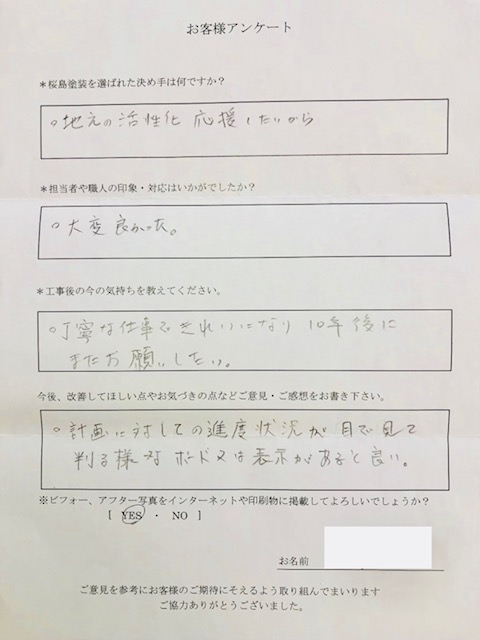 お客様アンケート
＊桜島塗装を選ばれた決め手は何ですか？
○地元の活性化 応援したいから
＊担当者や職人の印象・対応はいかがでしたか？
○大変良かった。
＊工事後の今の気持ちを教えてください。
○丁寧な仕事できれいになり 10年後に
またお願いしたい。
今後、改善してほしい点やお気づきの点などご意見・ご感想をお書き下さい。
○計画に対しての進度状況が目で見て
判る様なボード又は表示があると良い。
※ビフォー、アフター写真をインターネットや印刷物に掲載してよろしいでしょうか？
[ YES ・ NO ]
お名前
ご意見を参考にお客様のご期待にそえるよう取り組んでまいります
ご協力ありがとうございました。